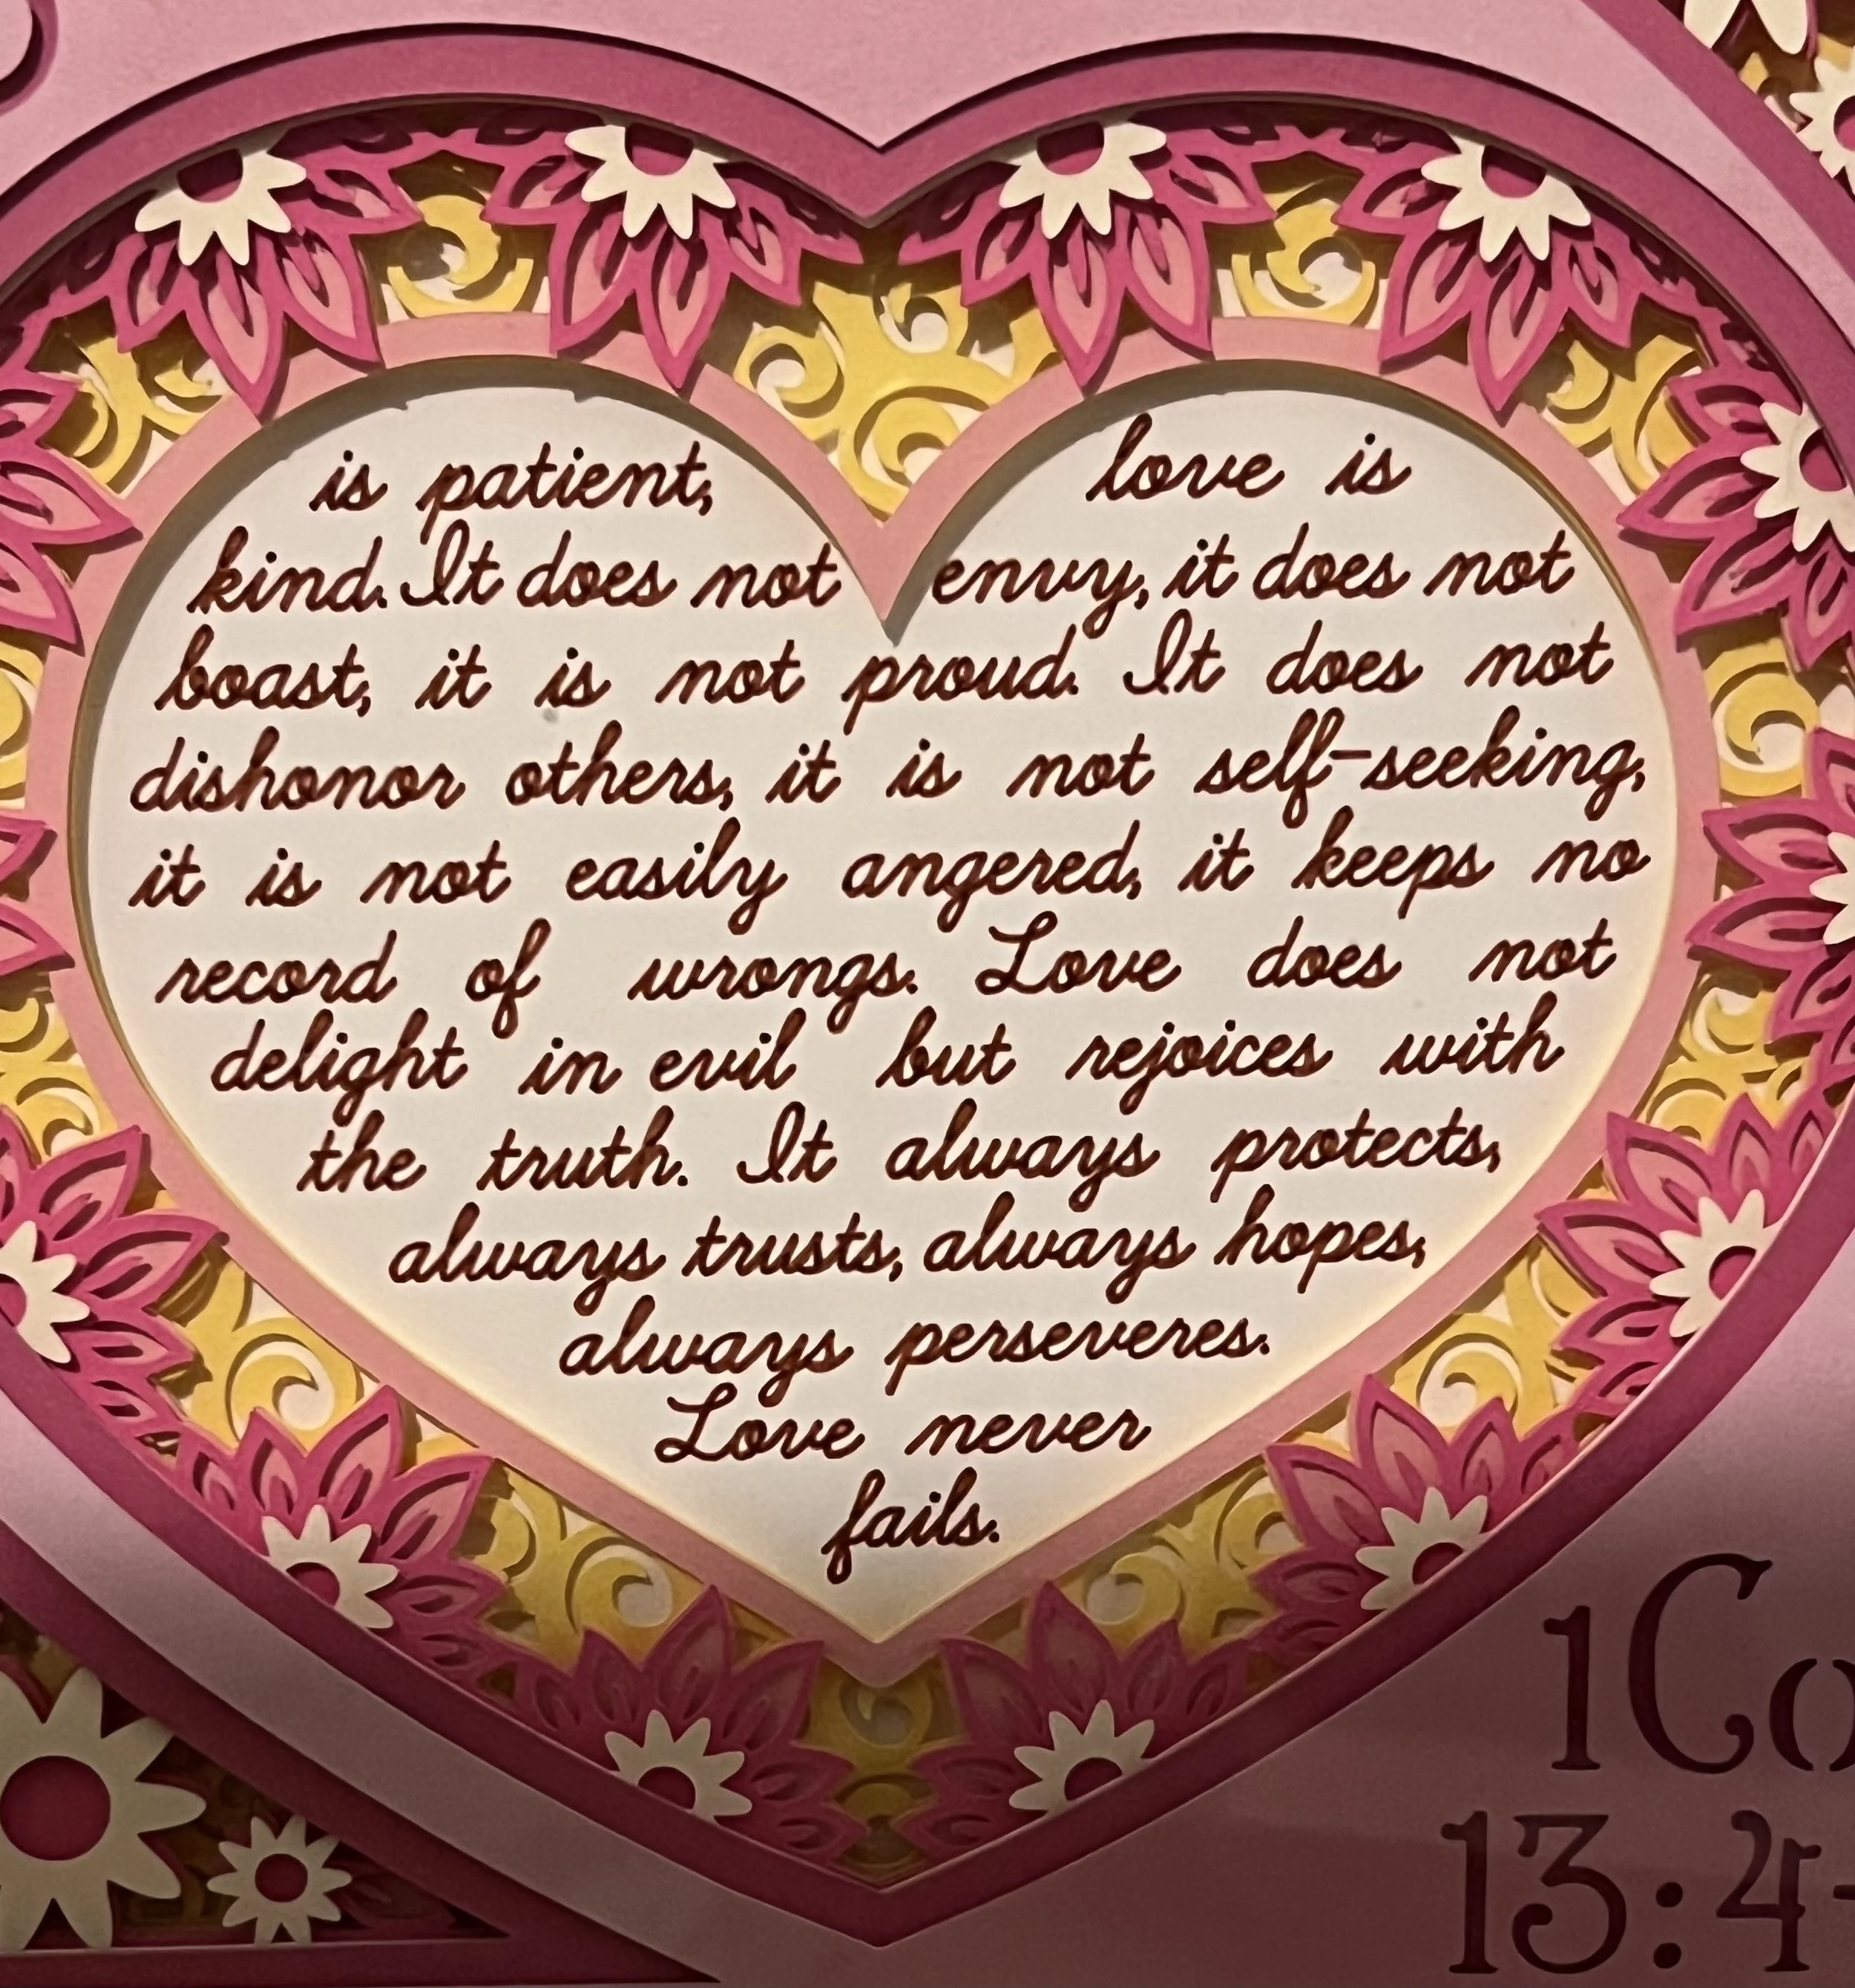 is patient, love is
kind. It does not envy, it does not
boast, it is not proud. It does not
dishonor others, it is not self-seeking,
it is not easily angered, it keeps no
record of wrongs. Love does not
delight in evil but rejoices with
the truth. It always protects,
always trusts, always hopes,
always perseveres.
Love never
fails.
1Co
13:4-